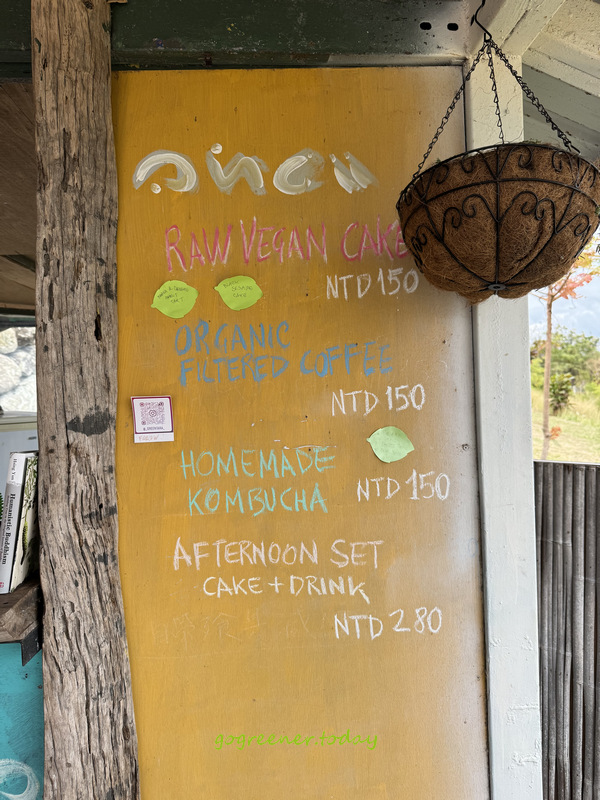 RAW VEGAN CAKE
NTD 150
ORGANIC
FILTERED COFFEE
NTD 150
HOMEMADE
KOMBUCHA
NTD 150
AFTERNOON SET
CAKE + DRINK
NTD 280
Humanistic Buddhism
gogreener.today